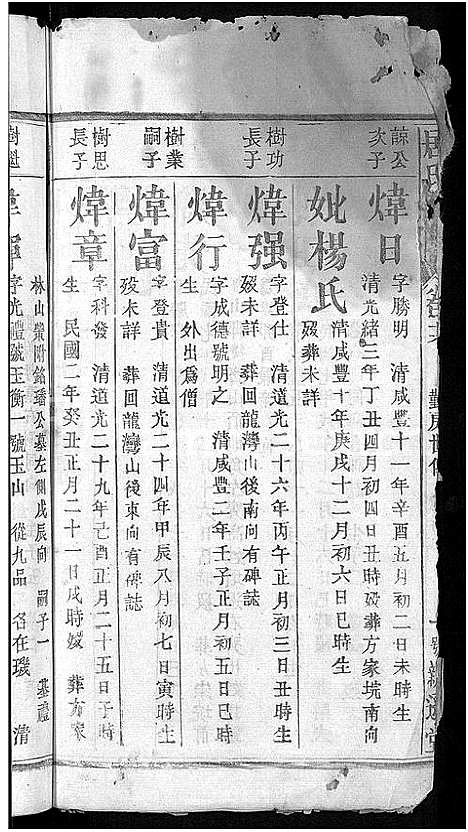 諒公
次子
煒日
字勝明　清咸豐十一年辛酉五月初二日未時生
清光緒三年丁丑四月初四日丑時歿葬方家坑南向
妣楊氏
清咸豐十年庚戌十二月初六日巳時生
歿葬未詳
樹功
長子
煒强
字登仕　清道光二十六年丙午正月初三日丑時生
歿未詳　葬回龍灣山後南向有碑誌
煒行
字成德號明之　清咸豐二年壬子正月初五日巳時
生　外出為僧
樹業
嗣子
煒富
字登貴　清道光二十四年甲辰八月初七日寅時生
歿未詳　葬回龍灣山後東向有碑誌
樹思
長子
煒章
字科發　清道光二十九年己酉正月二十五日子時
生　民國二年癸丑正月二十一日戌時歿　葬方家
林山瑩附銘墓公墓左側戌辰向　嗣子一　基禮
字光禮號玉衡一號玉山　從九品　名在璣　清